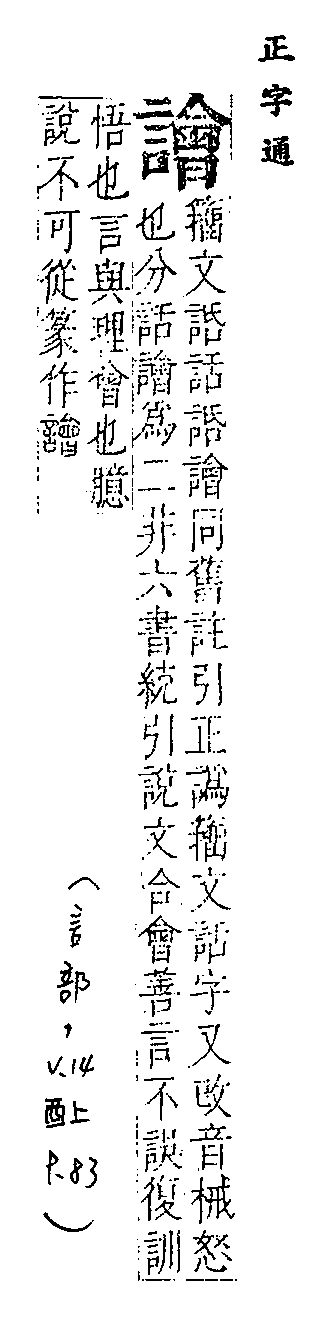 正字通
籀文䛡話䛡譮同舊註引正譌籀文話字又改音械怒
也分話譮爲二非六書統引說文合會善言不誤復訓
悟也言與理會也臆
說不可從篆作譮
(言部,V.14
酉上
P.83)